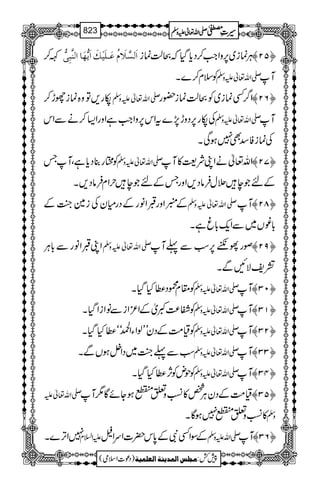 سیرتِ مصطفیٰ صلی اللہ تعالیٰ علیہ وسلم 823
﴿۲۵﴾ ہر نمازی پر واجب کر دیا گیا کہ بحالت نماز اَلسَّلَامُ عَلَیْکَ اَیُّھَا النَّبِیُّ کہہ کر
آپ صلی اللہ تعالیٰ علیہ وسلم کو سلام کرے۔
﴿۲۶﴾ اگر کسی نمازی کو بحالت نماز حضور صلی اللہ تعالیٰ علیہ وسلم پکاریں تو وہ نماز چھوڑ کر
آپ صلی اللہ تعالیٰ علیہ وسلم کی پکار پر دوڑ پڑے یہ اس پر واجب ہے اور ایسا کرنے سے اس
کی نماز فاسد بھی نہیں ہوگی۔
﴿۲۷﴾ اللہ تعالیٰ نے اپنی شریعت کا آپ صلی اللہ تعالیٰ علیہ وسلم کو مختار بنا دیا ہے، آپ جس
کے لئے جو چاہیں حلال فرما دیں اور جس کے لئے جو چاہیں حرام فرما دیں۔
﴿۲۸﴾ آپ صلی اللہ تعالیٰ علیہ وسلم کے منبر اور قبر انور کے درمیان کی زمین جنت کے
باغوں میں سے ایک باغ ہے۔
﴿۲۹﴾ صور پھونکنے پر سب سے پہلے آپ صلی اللہ تعالیٰ علیہ وسلم اپنی قبر انور سے باہر
تشریف لائیں گے۔
﴿۳۰﴾ آپ صلی اللہ تعالیٰ علیہ وسلم کو مقام محمود عطا کیا گیا۔
﴿۳۱﴾ آپ صلی اللہ تعالیٰ علیہ وسلم کو شفاعت کبریٰ کے اعزاز سے نوازا گیا۔
﴿۳۲﴾ آپ صلی اللہ تعالیٰ علیہ وسلم کو قیامت کے دن ”لواء الحمد“ عطا کیا گیا۔
﴿۳۳﴾ آپ صلی اللہ تعالیٰ علیہ وسلم سب سے پہلے جنت میں داخل ہوں گے۔
﴿۳۴﴾ آپ صلی اللہ تعالیٰ علیہ وسلم کو حوض کوثر عطا کیا گیا۔
﴿۳۵﴾ قیامت کے دن ہر شخص کا نسب و تعلق منقطع ہو جائے گا مگر آپ صلی اللہ تعالیٰ علیہ
وسلم کا نسب و تعلق منقطع نہیں ہوگا۔
﴿۳۶﴾ آپ صلی اللہ تعالیٰ علیہ وسلم کے سوا کسی نبی کے پاس حضرت اسرافیل علیہ السلام نہیں اترے۔
پیش کش: مجلس المدینۃ العلمیۃ (دعوت اسلامی)